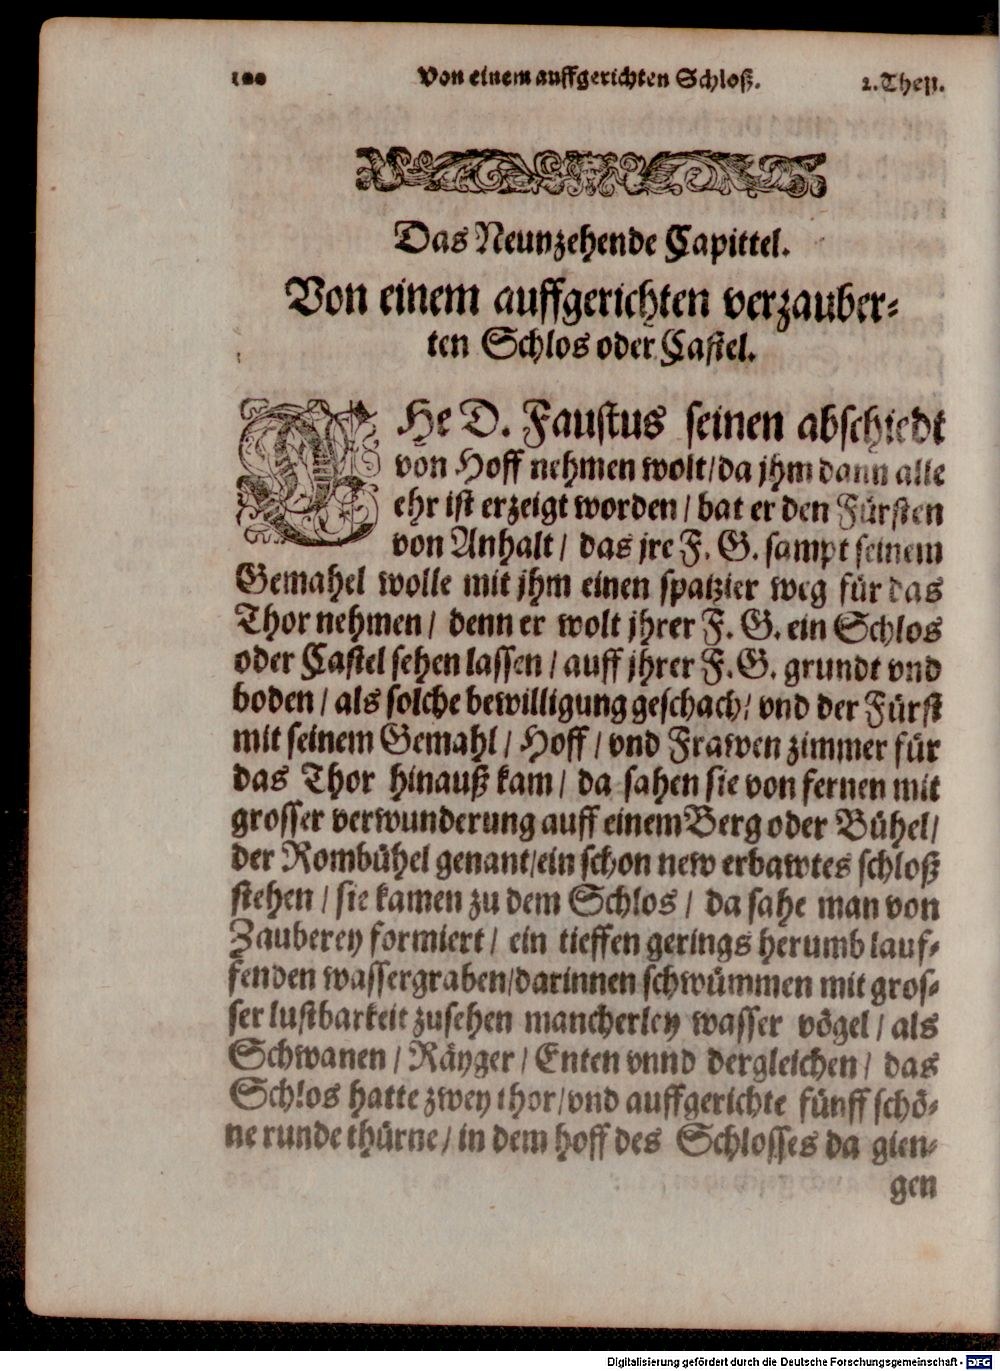 100 Von einem auffgerichten Schloß. 2. Theil.
Das Neunzehende Capittel.
Von einem auffgerichten verzauber⸗
ten Schlos oder Castel.
EHe D. Faustus seinen abschiedt
von Hoff nehmen wolt/ da jhm dann alle
ehr ist erzeigt worden / bat er den Fürsten
von Anhalt / das jre F. G. sampt seinem
Gemahel wolle mit jhm einen spatzier weg für das
Thor nehmen / denn er wolt jhrer F. G. ein Schlos
oder Castel sehen lassen / auff jhrer F. G. grundt vnd
boden / als solche bewilligung geschach/ vnd der Fürst
mit seinem Gemahl / Hoff / vnd Frawen zimmer für
das Thor hinauß kam / da sahen sie von fernen mit
grosser verwunderung auff einem Berg oder Bühel/
der Rombühel genant/ein schon new erbawtes schloß
stehen / sie kamen zu dem Schlos / da sahe man von
Zauberey formiert / ein tieffen gerings herumb lauf⸗
fenden wassergraben/darinnen schwümmen mit gros⸗
ser lustbarkeit zusehen mancherley wasser vögel / als
Schwanen / Räyger / Enten vnnd dergleichen / das
Schlos hatte zwey thor/vnd auffgerichte fünff schö⸗
ne runde thürne/ in dem hoff des Schlosses da gien⸗
gen
Digitalisierung gefördert durch die Deutsche Forschungsgemeinschaft - DFG